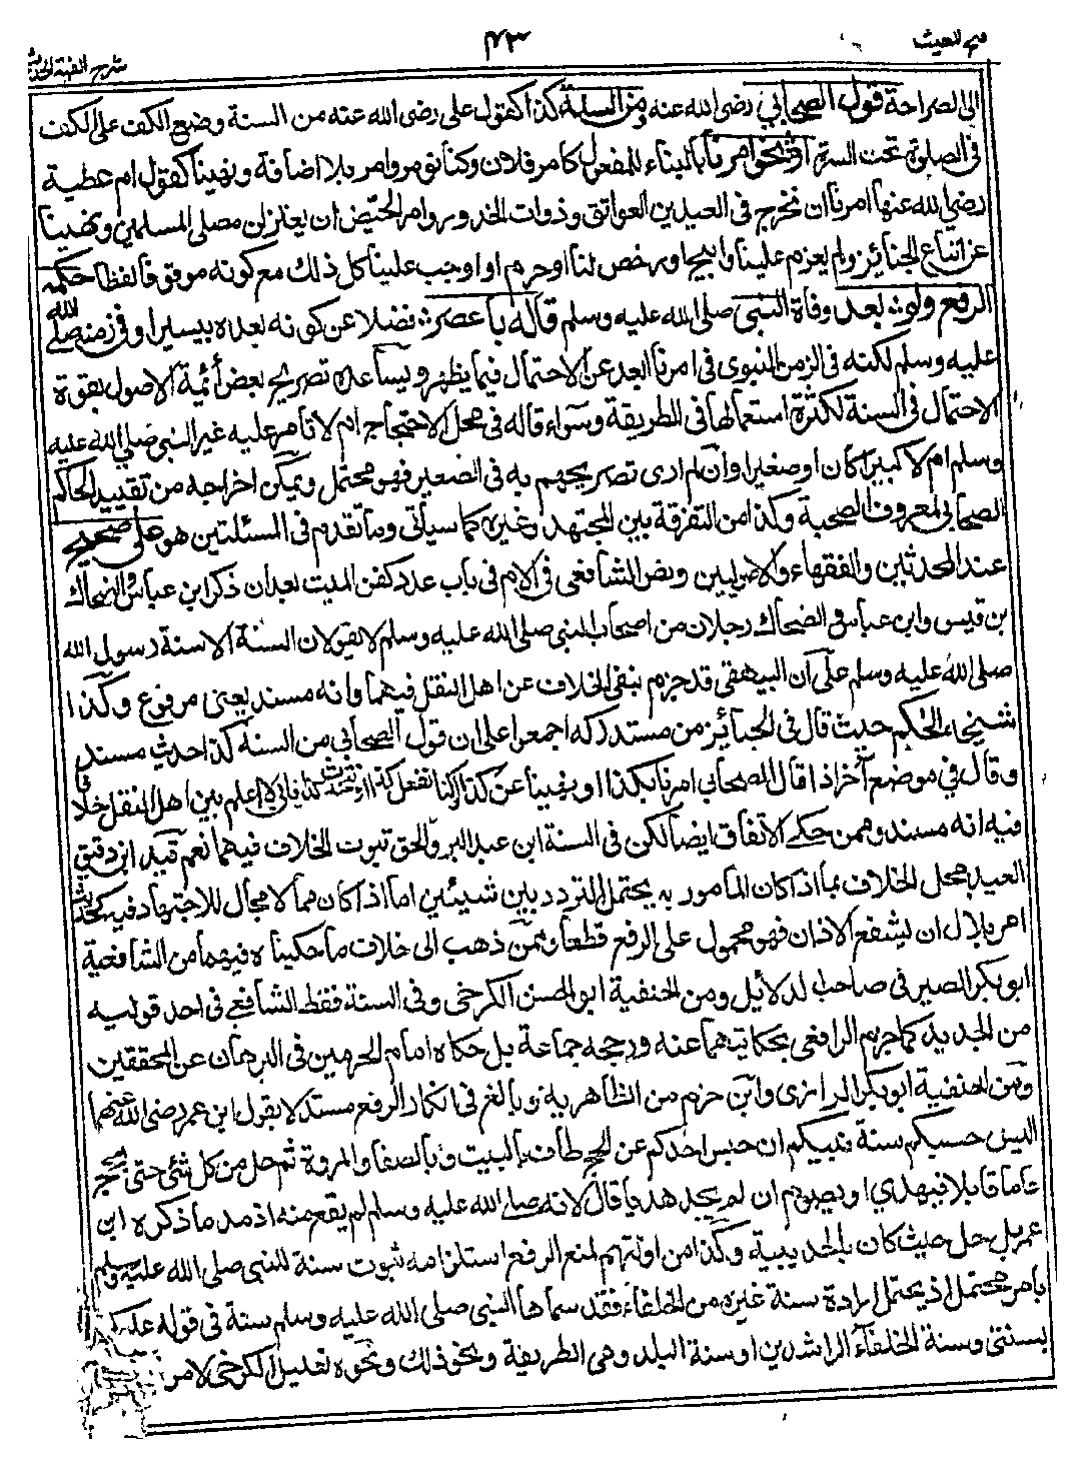 فتح المغيث
٤٣
شرح الفية الحديث
الى الصراحة قول الصحابي رضى الله عنه ومن السنة كذا كقول على رضى الله عنه من السنة وضع الكف على الكف
فى الصلوة تحت السرة او نحو امرنا بالبناء للمفعول كامر فلان وكنا نومر وامر بلا اضافة ونهينا كقول ام عطية
رضى الله عنها امرنا ان نخرج فى العيدين العواتق وذوات الخدور وامر الحيض ان يعتزلن مصلى المسلمين ونهينا
عن اتباع الجنائز ولم يعزم علينا وابيح او رخص لنا او حرم او اوجب علينا كل ذلك مع كونه موقوفا لفظا حكمه
الرفع ولو بعد وفاة النبى صلى الله عليه وسلم قاله باعصر فضلا عن كونه بعده بيسير او فى زمنه صلى الله
عليه وسلم لكنه فى الزمن النبوى فى امرنا ابعد عن الاحتمال فيما يظهر ويساعده تصريح بعض أئمة الاصول بقوة
الاحتمال فى السنة لكثرة استعمالها فى الطريقة وسواء قاله فى محل الاحتجاج ام لا تأمر عليه غير النبى صلى الله عليه
وسلم ام لا كبيرا كان او صغيرا وان لم ارى تصريحهم به فى الصغير فهو محتمل ويمكن اخراجه من تقييد الحاكم
الصحابى بالمعروف الصحبة وكذا من التفرقة بين المجتهد وغيره كما سيأتى وما تقدم فى المسئلتين هو على صحيح
عند المحدثين والفقهاء والاصوليين ونص الشافعى فى الام فى باب عدد كفن الميت بعد ان ذكر ابن عباس والضحاك
بن قيس وابن عباس والضحاك رجلان من اصحاب النبى صلى الله عليه وسلم لا يقولان السنة الا سنة رسول الله
صلى الله عليه وسلم على ان البيهقى قد جزم بنفى الخلاف عن اهل النقل فيهما وانه مسند يعنى مرفوع وكذا
شيخه الحكم حيث قال فى الجنائز من مستدركه اجمعوا على ان قول الصحابي من السنة كذا حديث مسند
وقال في موضع آخر اذا قال الصحابي امرنا بكذا او نهينا عن كذا او كنا نفعل كذا او كنا نتحدث فانى لا اعلم بين اهل النقل خلافا
فيه انه مسند وممن حكى الاتفاق ايضا لكن فى السنة ابن عبد البر والحق ثبوت الخلاف فيهما نعم قيد ابن دقيق
العيد محل الخلاف بما اذا كان المأمور به يحتمل التردد بين شيئين اما اذا كان مما لا مجال للاجتهاد فيه كحديث
امر بلال ان يشفع الاذان فهو محمول على الرفع قطعا وممن ذهب الى خلاف ما حكيناه فيهما من الشافعية
ابو بكر الصيرفى صاحب الدلائل ومن الحنفية ابو الحسن الكرخى وفى السنة فقط الشافعى فى احد قوليه
من الجديد كما جزم الرافعى بحكايتهما عنه ورجحه جماعة بل حكاه امام الحرمين فى البرهان عن المحققين
ومن الحنفية ابو بكر الرازى وابن حزم من الظاهرية وبالغ فى انكار الرفع مستدلا بقول ابن عمر رضى الله عنهما
اليس حسبكم سنة نبيكم ان حبس احدكم عن الحج طاف بالبيت وبالصفا والمروة ثم حل من كل شئ حتى يحج
عاما قابلا فيهدي او يصوم ان لم يجد هديا قال لانه صلى الله عليه وسلم لم يقع منه اذ صد ما ذكره ابن
عمر بل حل حيث كان بالحديبية وكذا من ادلتهم لمنع الرفع استلزامه ثبوت سنة للنبى صلى الله عليه وسلم
بامر محتمل اذ يحتمل ارادة سنة غيره من الخلفاء فقد سماها النبى صلى الله عليه وسلم سنة فى قوله عليكم
بسنتى وسنة الخلفآء الراشدين او سنة البلد وهى الطريقة ونحو ذلك ونحوه تعليل الكرخى لامر